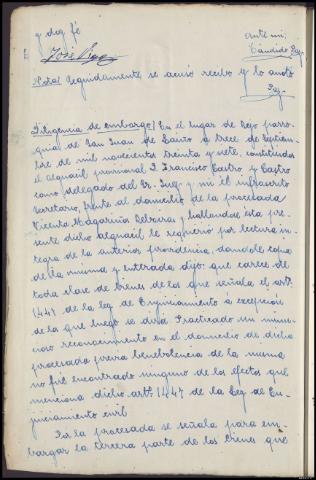 y doy fé
ante mi.
José Rey
Cándido Rey
Nota/ Seguidamente se acusó recibo y lo anoto
Rey.
Diligencia de embargo/ En el lugar de Rejo parro-
quia de San Juan de Laiño a trece de Septiem-
bre de mil novecientos treinta y siete, constituidos
el alguacil provisional D. Francisco Castro y Castro
como delegado del Sr. Juez y mi el infrascrito
Secretario, frente al domicilio de la procesada
Vicenta Magariños y hallandose ésta pre-
sente dicho alguacil le requerio por lectura in-
tegra de la anterior providencia, dandole copia
de la misma y enterada dijo: que carece de
toda clase de bienes de los que señala el art.
1447 de la ley de Enjuiciamiento á excepción
de la que luego se dirá. Practicado un minu-
cioso reconocimiento en el domicilio de dicha
procesada previa benebolencia de la misma
no fué encontrado ninguno de los efectos que
menciona dicho artº. 1447 de la Ley de En-
juiciamiento civil
Por la procesada se señala para em-
bargar la tercera parte de los bienes que